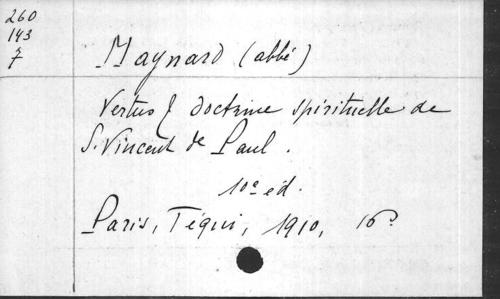 260
143
7
Maynard (abbé)
Vertus & doctrine spirituelle de
S. Vincent de Paul.
10e éd.
Paris, Téqui, 1910, 16°